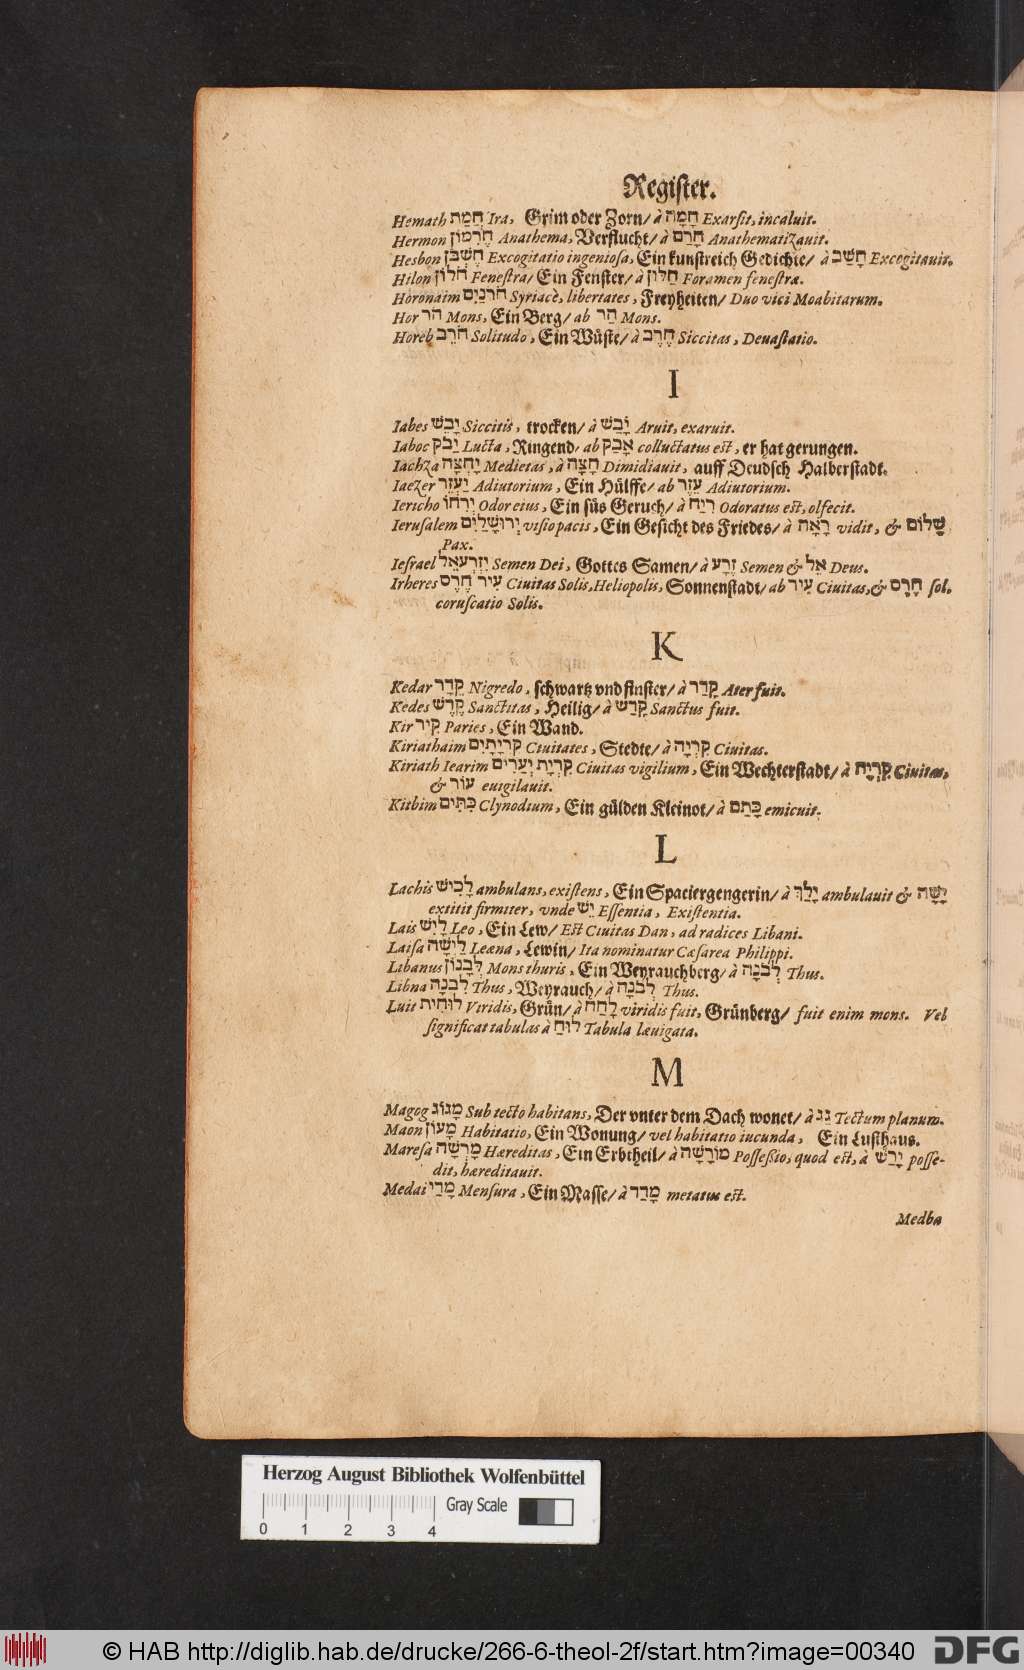 Register.
Hemath חֲמַת Ira, Grim oder Zorn/ à חָמָה Exarsit, incaluit.
Hermon חֶרְמוֹן Anathema, Verflucht/ à חָרַם Anathematizauit.
Hesbon חֶשְׁבֹּן Excogitatio ingeniosa, Ein kunstreich Gedichte/ à חָשַׁב Excogitauit.
Hilon חֹלוֹן Fenestra/ Ein Fenster/ à חַלּוֹן Foramen fenestræ.
Horonaim חֹרֹנַיִם Syriacè, libertates, Freyheiten/ Duo vici Moabitarum.
Hor הֹר Mons, Ein Berg/ ab הַר Mons.
Horeb חֹרֵב Solitudo, Ein Wüste/ à חֶרֶב Siccitas, Deuastatio.
I
Iabes יָבֵשׁ Siccitis, trocken/ à יָבַשׁ Aruit, exaruit.
Iaboc יַבֹּק Lucta, Ringend/ ab אָבַק colluctatus est, er hat gerungen.
Iachza יַחְצָה Medietas, à חָצָה Dimidiauit, auff Deudsch Halberstadt.
Iaezer יַעְזֵר Adiutorium, Ein Hülffe/ ab עֵזֶר Adiutorium.
Iericho יְרִחוֹ Odor eius, Ein süs Geruch/ à רִיחַ Odoratus est, olfecit.
Ierusalem יְרוּשָׁלַיִם visio pacis, Ein Gesicht des Friedes/ à רָאָה vidit, & שָׁלוֹם
Pax.
Iesrael יִזְרְעֶאל Semen Dei, Gottes Samen/ à זֶרַע Semen & אֵל Deus.
Irheres עִיר חֶרֶס Ciuitas Solis, Heliopolis, Sonnenstadt/ ab עִיר Ciuitas, & חֶרֶס sol.
coruscatio Solis.
K
Kedar קֵדָר Nigredo, schwartz vnd finster/ à קָדַר Ater fuit.
Kedes קֶדֶשׁ Sanctitas, Heilig/ à קָדַשׁ Sanctus fuit.
Kir קִיר Paries, Ein Wand.
Kiriathaim קִרְיָתַיִם Ciuitates, Stedte/ à קִרְיָה Ciuitas.
Kiriath Iearim קִרְיַת יְעָרִים Ciuitas vigilium, Ein Wechterstadt/ à קִרְיָה Ciuitas,
& עוֹר euigilauit.
Kithim כִּתִּים Clynodium, Ein gülden Kleinot/ à כָּתַם emicuit.
L
Lachis לָכִישׁ ambulans, existens, Ein Spaciergengerin/ à יָלַךְ ambulauit & יָשָׁה
extitit firmiter, vnde יֵשׁ Essentia, Existentia.
Lais לַיִשׁ Leo, Ein Lew/ Est Ciuitas Dan, ad radices Libani.
Laisa לַיְשָׁה Leæna, Lewin/ Ita nominatur Cæsarea Philippi.
Libanus לְבָנוֹן Mons thuris, Ein Weyrauchberg/ à לְבֹנָה Thus.
Libna לִבְנָה Thus, Weyrauch/ à לְבֹנָה Thus.
Luit לוּחִית Viridis, Grün/ à לָחַח viridis fuit, Grünberg/ fuit enim mons. Vel
significat tabulas à לוּחַ Tabula læuigata.
M
Magog מָגוֹג Sub tecto habitans, Der vnter dem Dach wonet/ à גַּג Tectum planum.
Maon מָעוֹן Habitatio, Ein Wonung/ vel habitatio iucunda, Ein Lusthaus.
Maresa מָרֵשָׁה Hæreditas, Ein Erbtheil/ à מוֹרָשָׁה Possessio, quod est, à יָרַשׁ posse-
dit, hæreditauit.
Medai מָדַי Mensura, Ein Masse/ à מָדַד metatus est.
Medba
Herzog August Bibliothek Wolfenbüttel
Gray Scale
0 1 2 3 4
© HAB http://diglib.hab.de/drucke/266-6-theol-2f/start.htm?image=00340
DFG